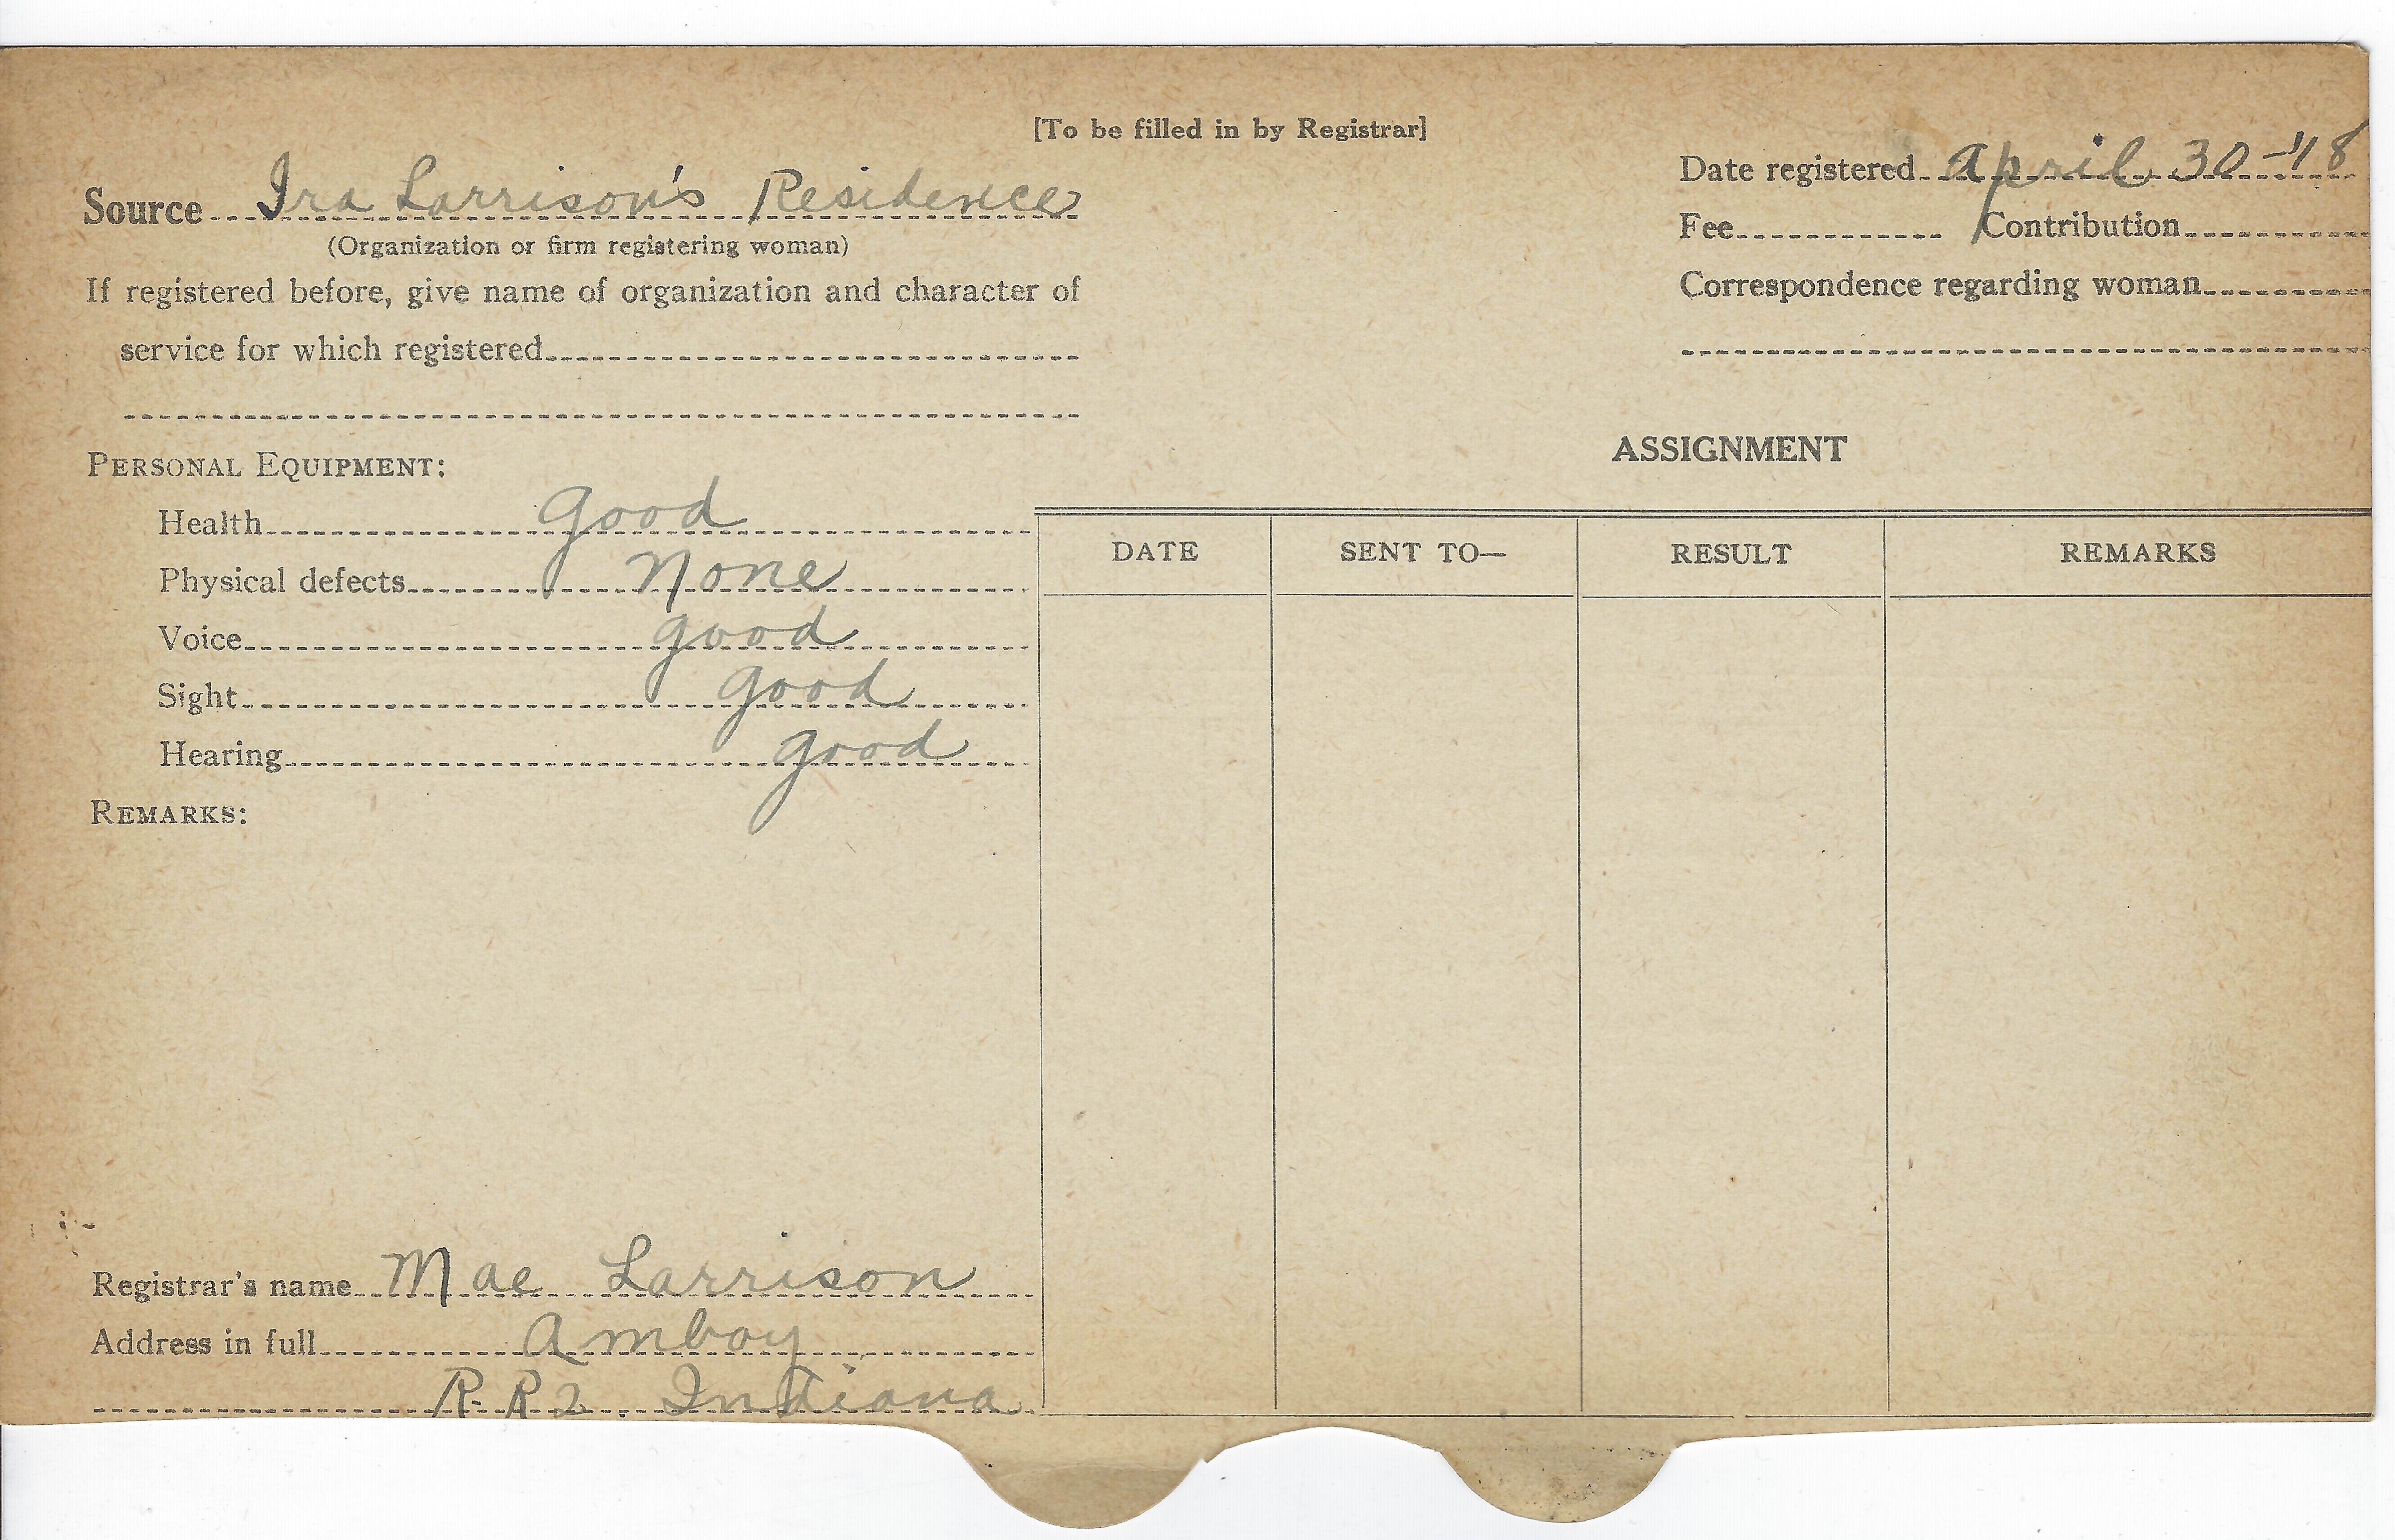 [To be filled in by Registrar]
Source Ira Larrison's Residence
(Organization or firm registering woman)
If registered before, give name of organization and character of
service for which registered
Date registered April 30-'18
Fee Contribution
Correspondence regarding woman
PERSONAL EQUIPMENT:
Health good
Physical defects None
Voice good
Sight good
Hearing good
REMARKS:
Registrar's name Mae Larrison
Address in full Amboy
R.R 2. Indiana
ASSIGNMENT
DATE SENT TO— RESULT REMARKS